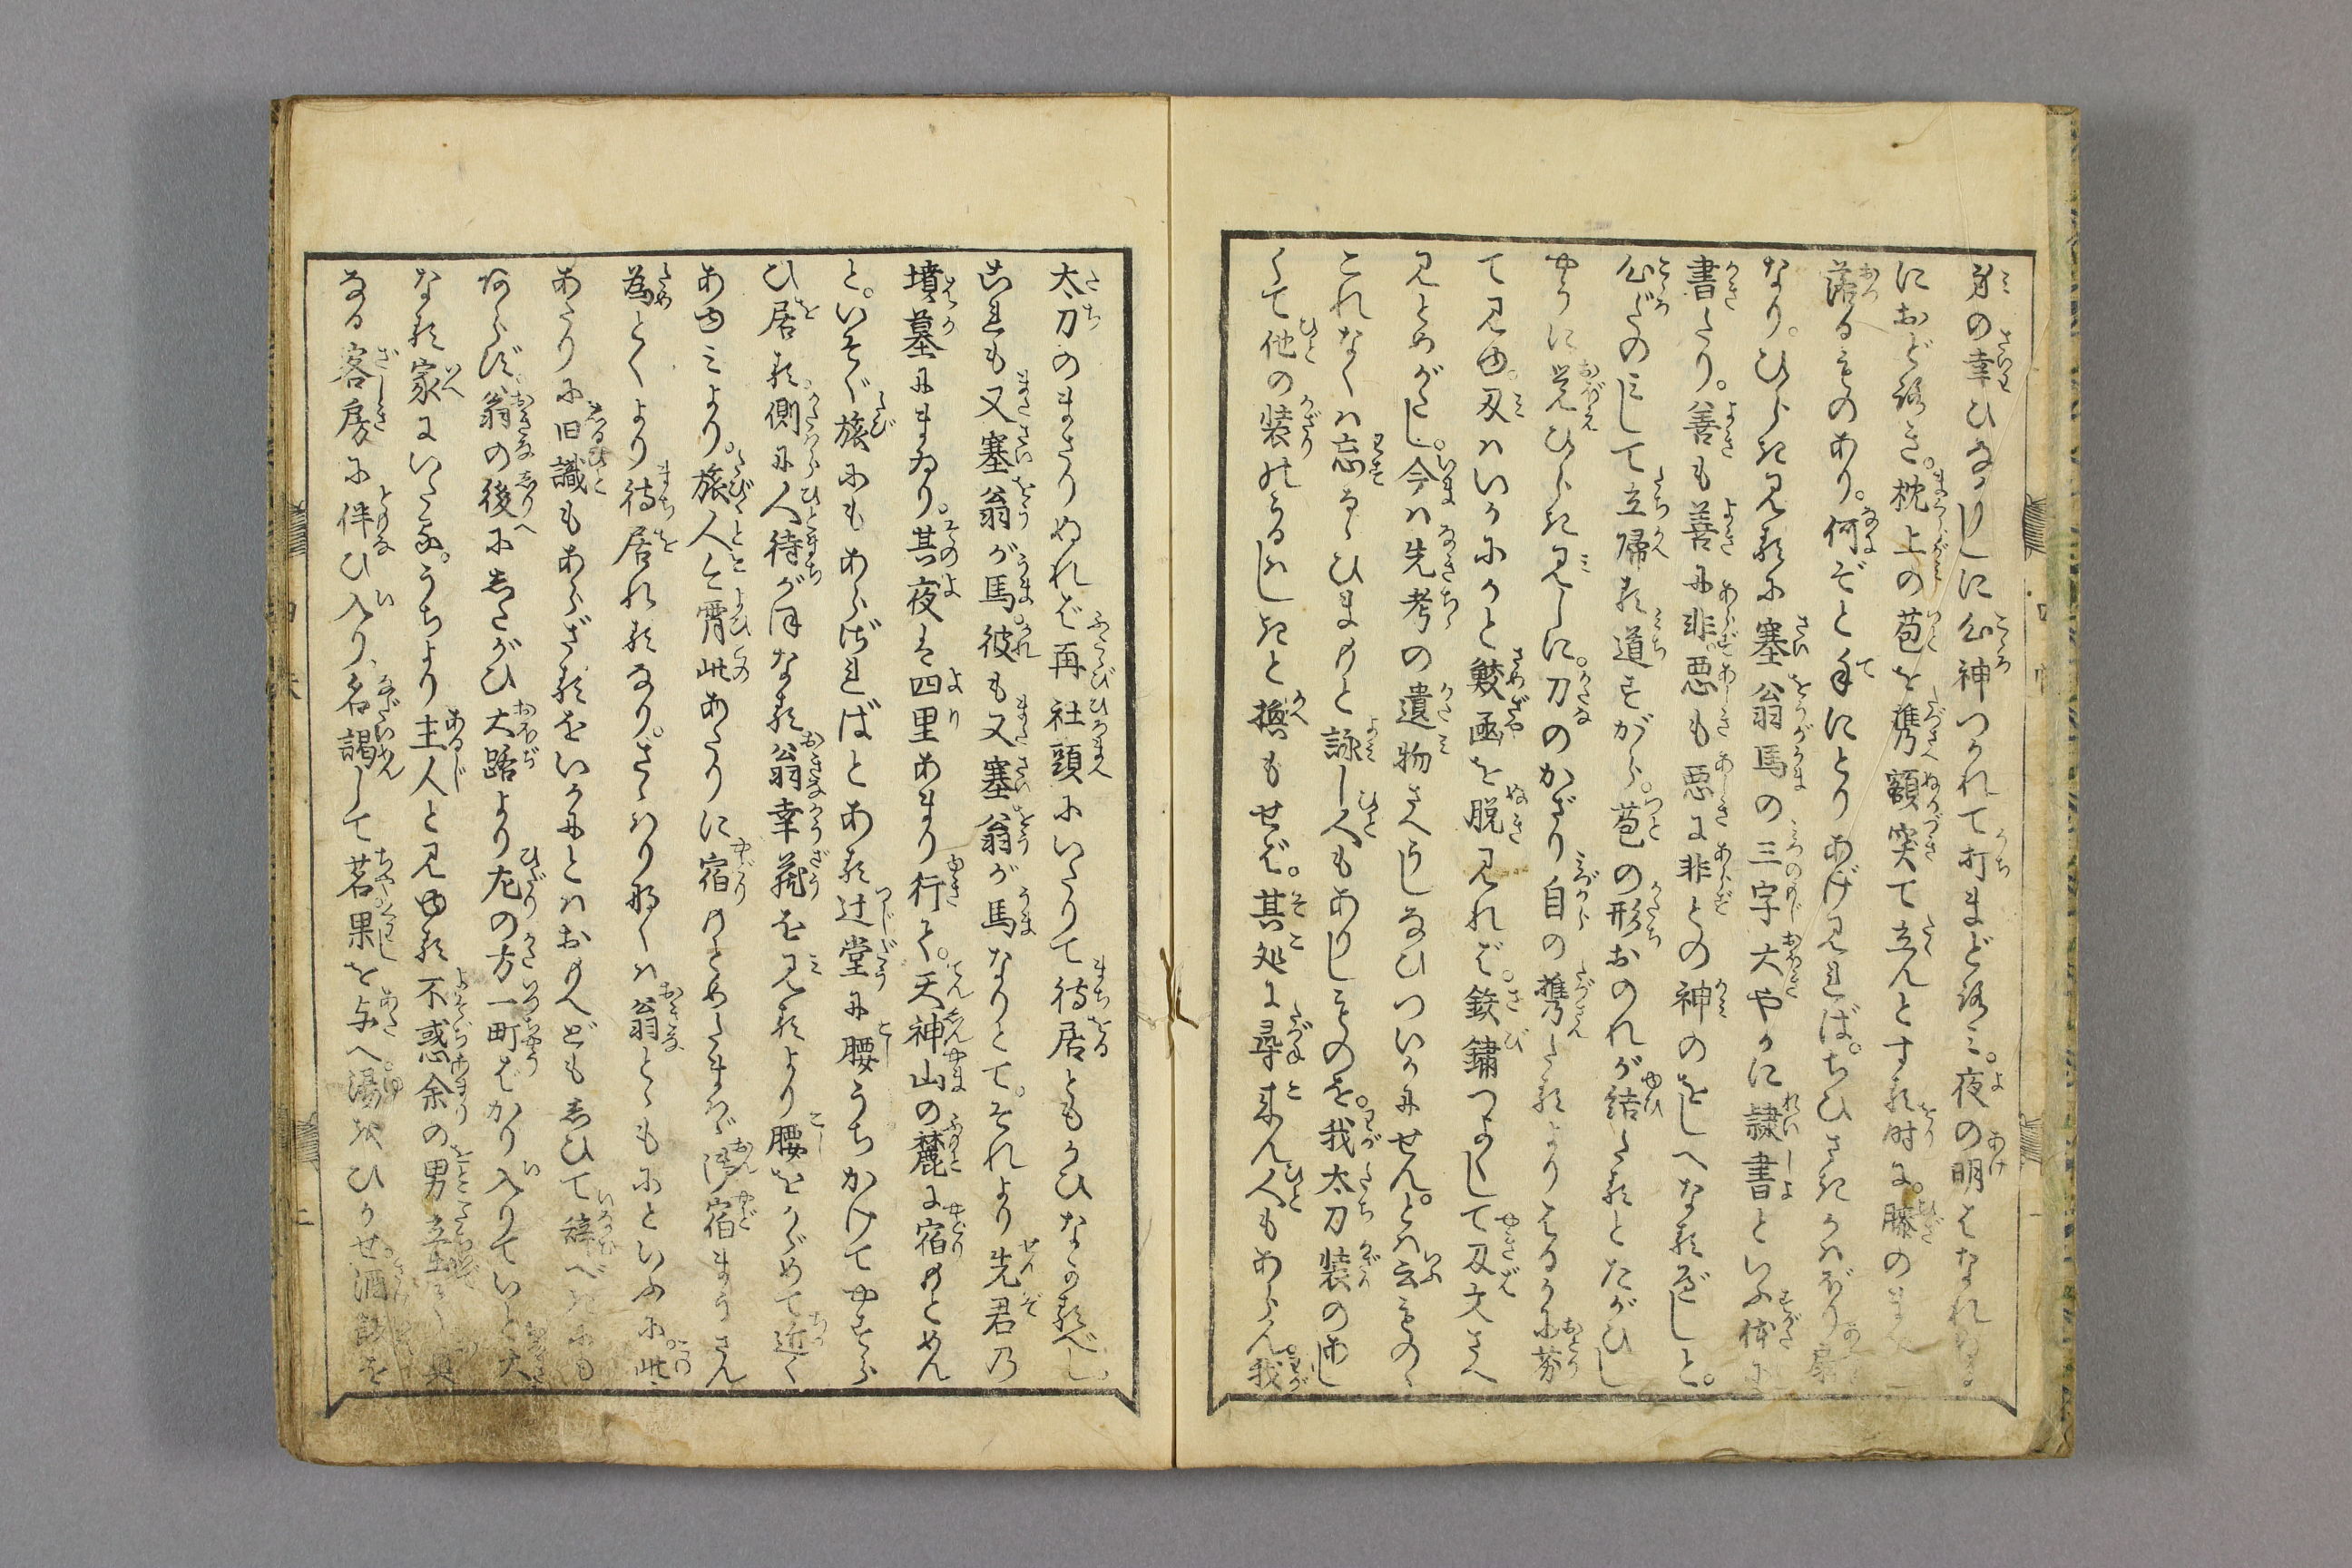 身の幸ひなりしに心神つかれて打まどろみ。夜の明はなれぬる
におどろき。枕上の苞を携額突て立んとする時に。膝の
落るものあり。何ぞと手にとりあげ見れば。ちひさきかはほり扇
なり。ひらき見るに塞翁馬の三字大やかに隷書といふ体に
書たり。善も善に非。悪も悪に非との神のをしへなるべしと。
心だのみして立帰る道すがら。苞の形おのれが結たるとたがひし
やうに覚ひらき見しに。刀のかざり自の携たるよりはるかに劣
て見ゆ。刄はいかにかと鮫函を脱見れば。鉄鏽つよくして刄文さへ
見とめがたし。今は先考の遺物さへうしなひついかにせん。とは云ものゝ
これなくは忘るゝひまのと詠し人もありしものを。我太刀装のあし
くて他の装のよるはしきと換もせば。其処に尋来ん人もあらん。我
太刀のまさりぬれば再社頭にいたりて待居ともかひなかるべし。
これも又塞翁が馬。彼も又塞翁が馬なりとて。それより先君乃
墳墓にまゐり。其夜は四里あまり行て。天神山の麓に宿のとめん
と。いそぐ旅にもあらざればとある辻堂に腰うちかけてやすら
ひ居る。側に人待がほなる翁幸蔵を見るより腰をかゞめて近く
あゆみより。旅人は霄此あたりに宿のとめたまはゞ御宿まうさん
為とくより待居れるなり。さゝはり那くは翁とゝもにといふに。此
あたりに旧識もあらざるをいかにとはおもへども志ひて辞べきにも
あらず翁の後に志たがひ大路より左の方一町ばかり入りていと大
なる家にいたる。うちより主人と見ゆる不惑余の男立出て
なる客房に伴ひ入り、名謁して茗果を与へ湯をひかせ。酒飯を